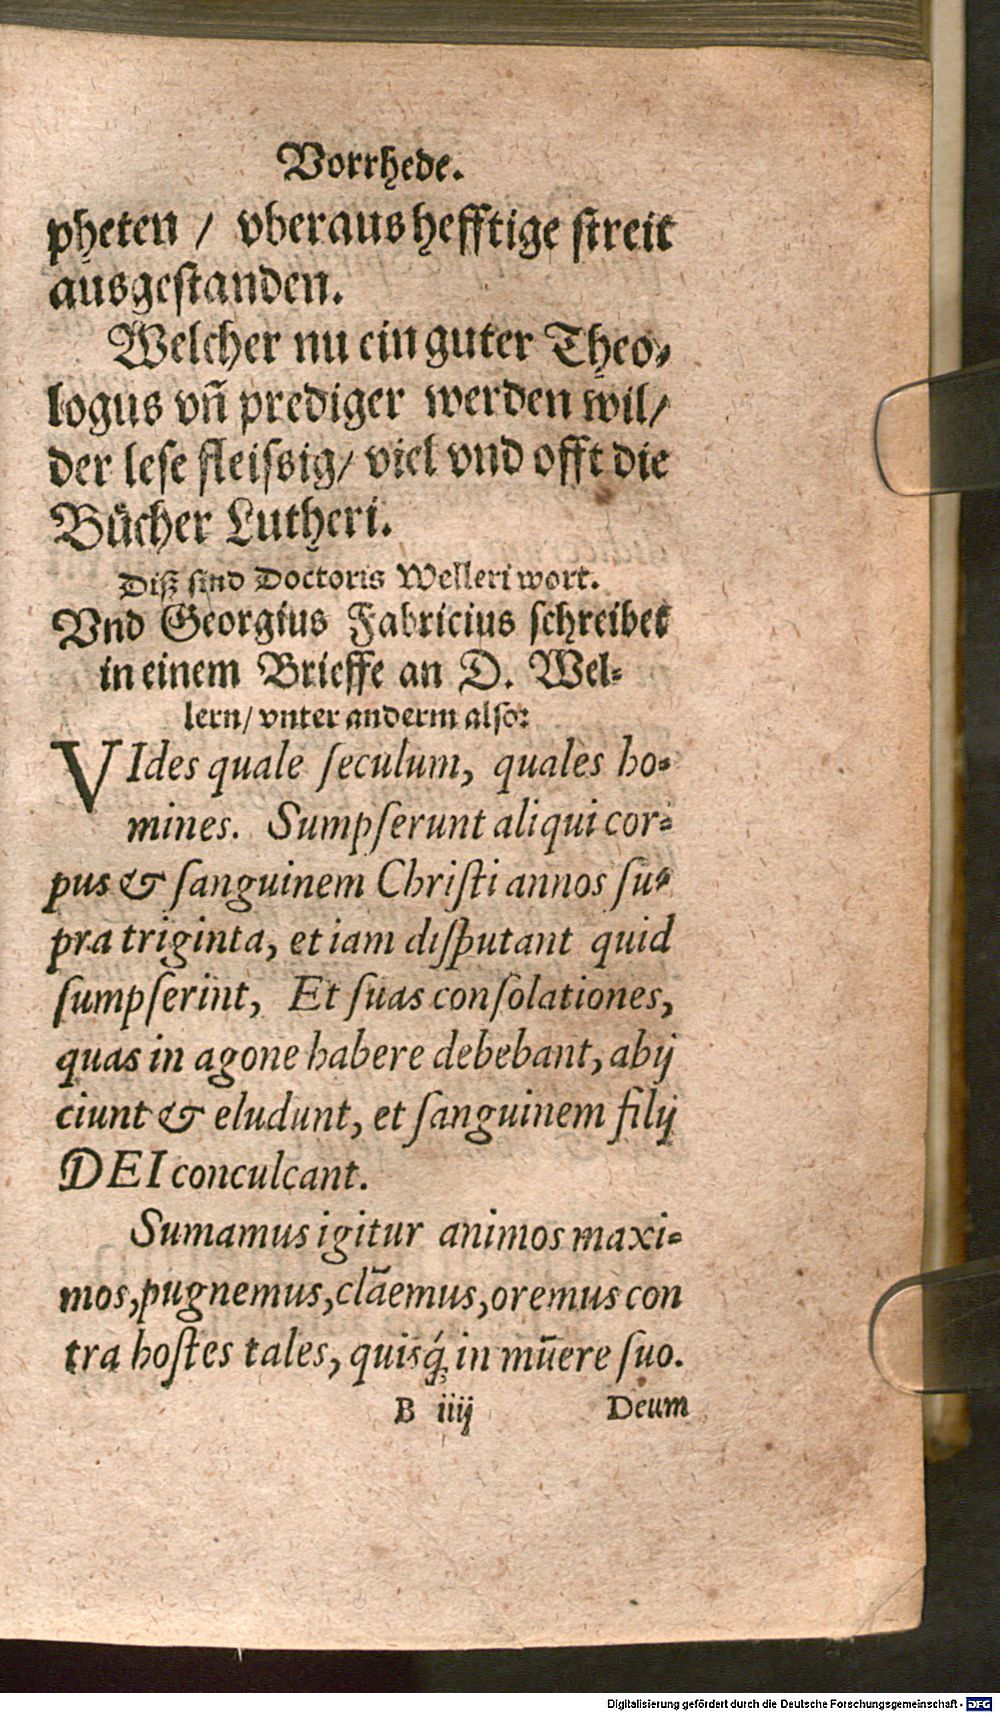 Vorrhede.
pheten / vberaus hefftige streit
ausgestanden.
Welcher nu ein guter Theo⸗
logus vñ prediger werden wil/
der lese fleissig/ viel vnd offt die
Bücher Lutheri.
Diß sind Doctoris Welleri wort.
Vnd Georgius Fabricius schreibet
in einem Brieffe an D. Wel⸗
lern/ vnter anderm also:
VIdes quale seculum, quales ho⸗
mines. Sumpserunt aliqui cor⸗
pus & sanguinem Christi annos su⸗
pra triginta, et iam disputant quid
sumpserint, Et suas consolationes,
quas in agone habere debebant, abij
ciunt & eludunt, et sanguinem filij
DEI conculcant.
Sumamus igitur animos maxi⸗
mos, pugnemus, clāemus, oremus con
tra hostes tales, quisq́; in mūere suo.
B iiij Deum
Digitalisierung gefördert durch die Deutsche Forschungsgemeinschaft - DFG